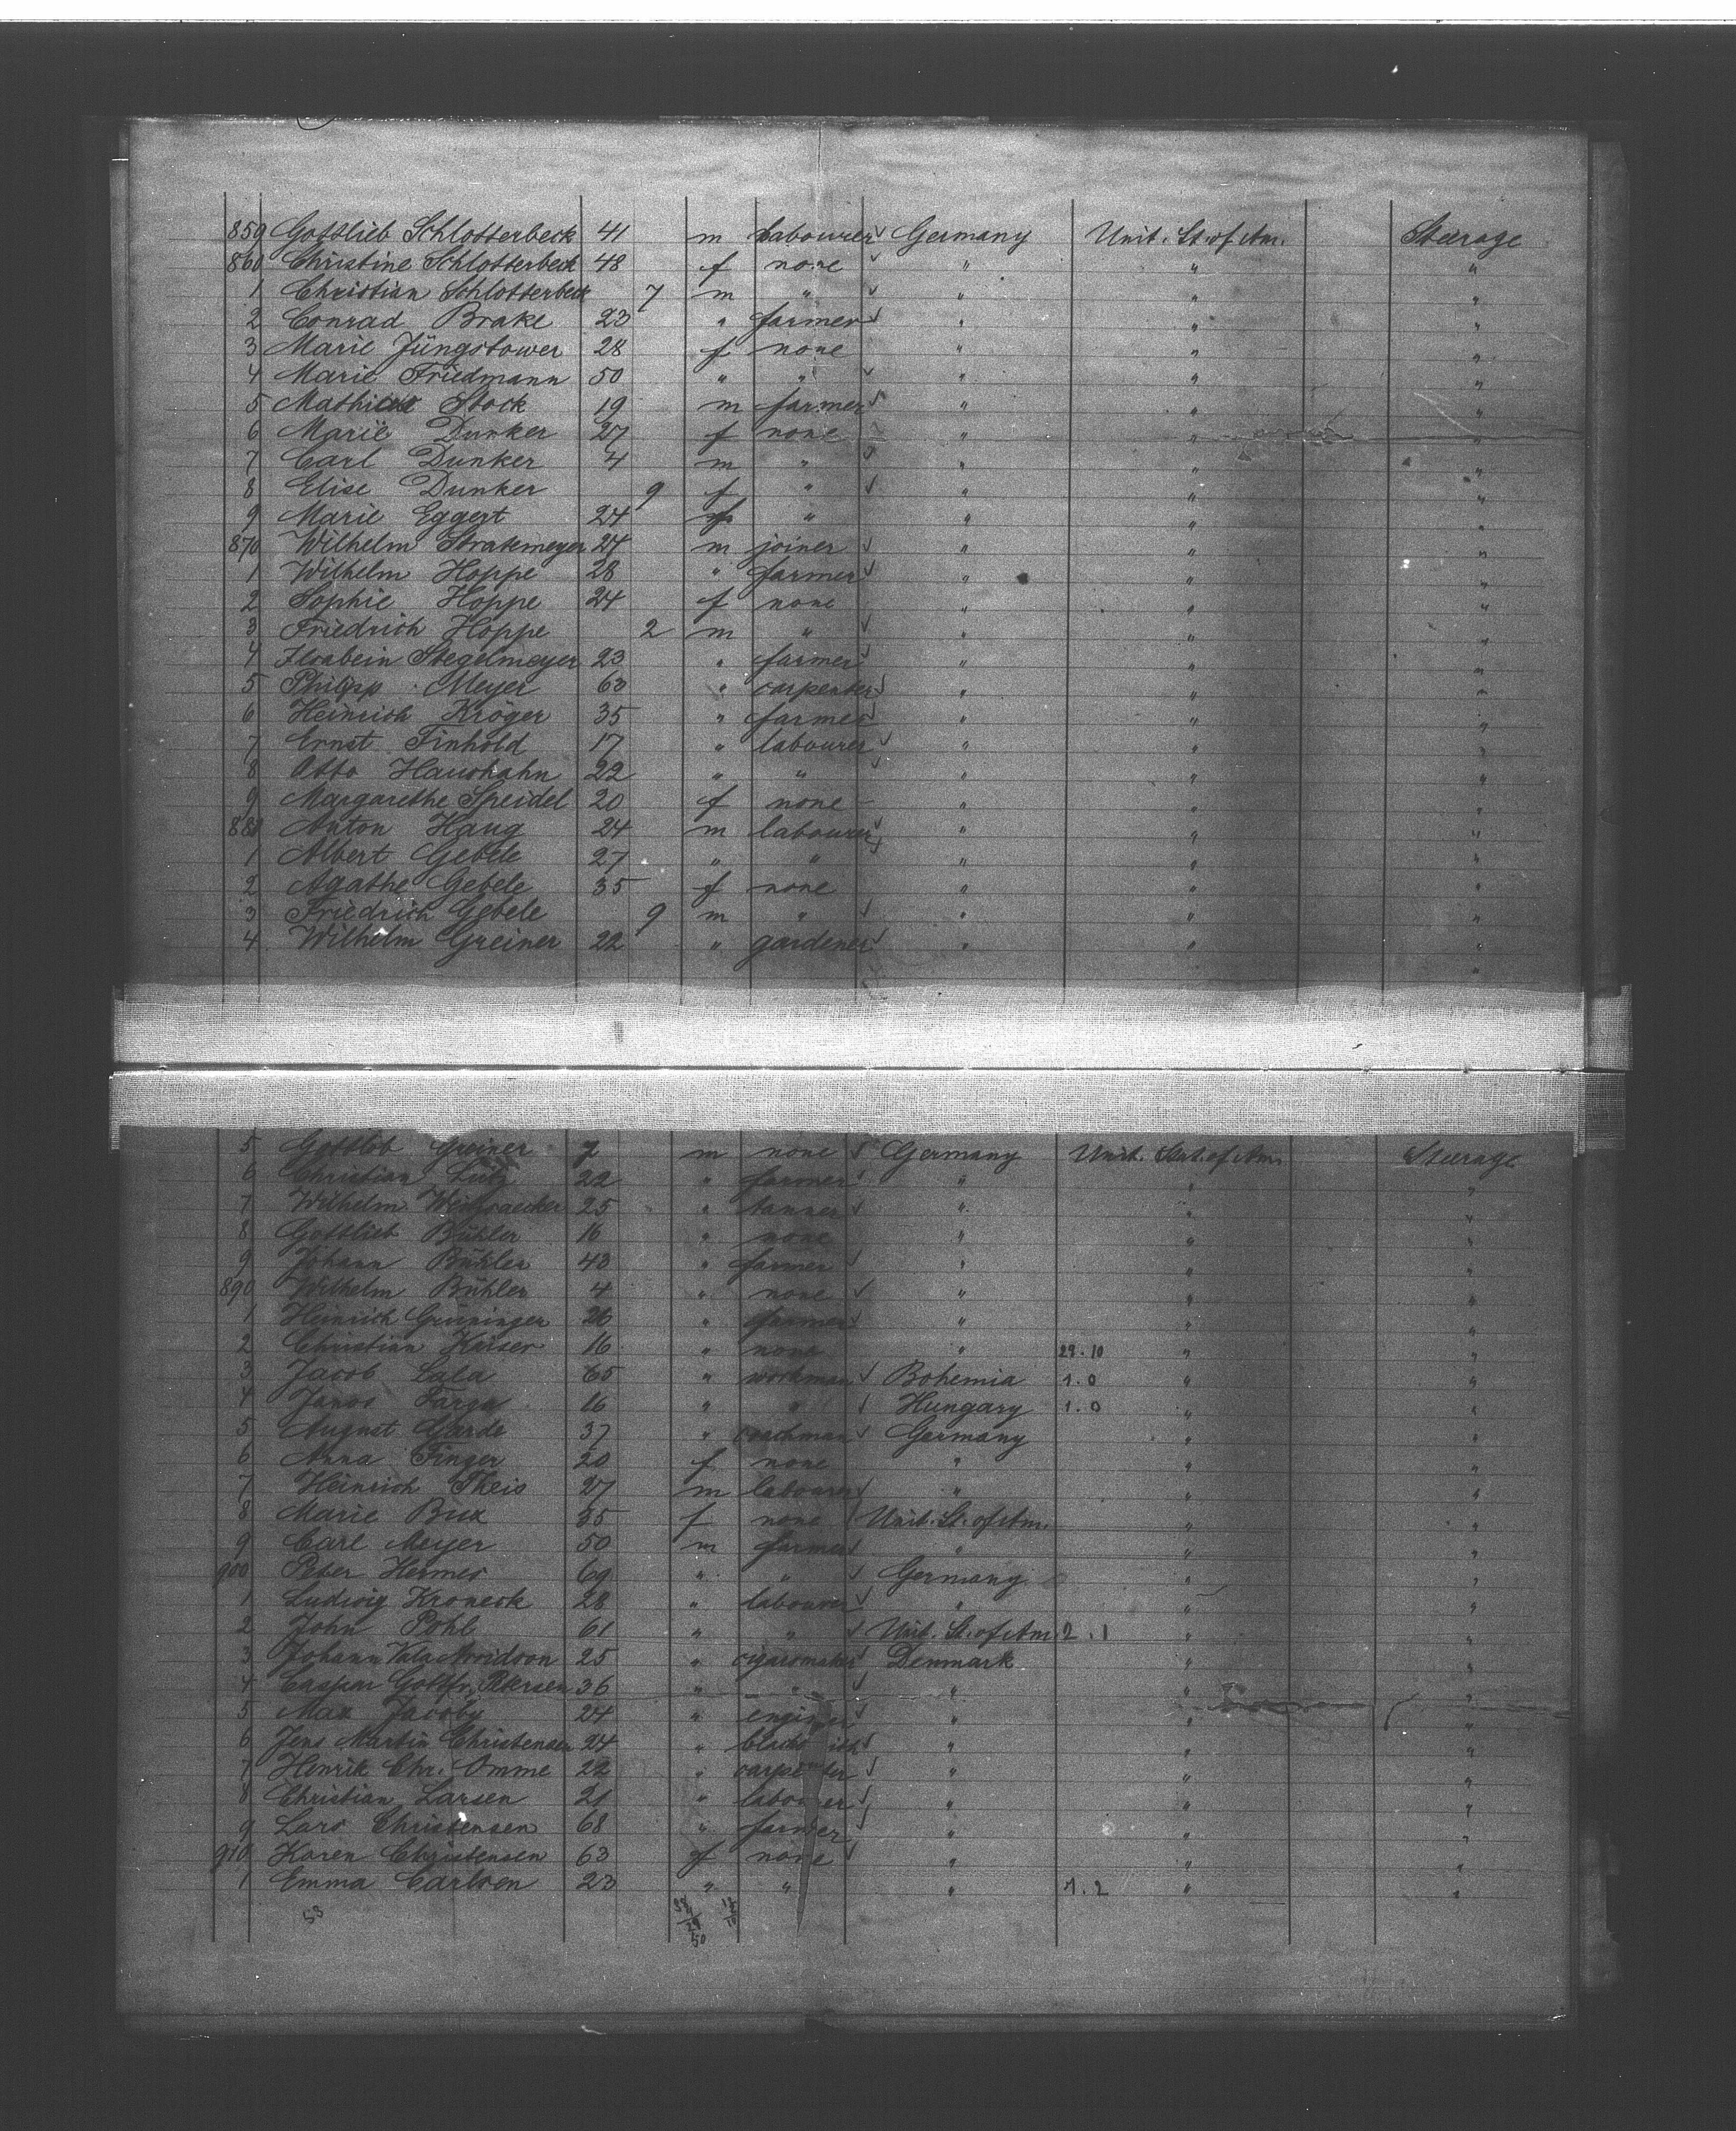 859 Gottlieb Schlotterbeck 41 m labourer ✓ Germany Unit. St. of Am. Steerage
860 Christine Schlotterbeck 48 f none ✓ " " "
1 Christian Schlotterbeck 7 m " ✓ " " "
2 Conrad Brake 23 " farmer ✓ " " "
3 Marie Jüngstower 28 f none " " "
4 Marie Friedmann 50 " " ✓ " " "
5 Stock 19 m farmer ✓ " " "
6 Marie Dunker 27 f none " " "
7 Carl Dunker 4 m " ✓ " " "
8 Elise Dunker 9 f " ✓ " " "
9 Marie Eggert 24 f " " " "
870 Wilhelm Stratemeyer 24 m joiner ✓ " " "
1 Wilhelm Hoppe 28 " farmer ✓ " " "
2 Sophie Hoppe 24 f none " " "
3 Friedrich Hoppe 2 m " ✓ " " "
4 Stegelmeyer 23 " farmer ✓ " " "
5 Philipp Meyer 63 " carpenter ✓ " " "
6 Heinrich Kröger 35 " farmer ✓ " " "
7 Ernst Finhold 17 " labourer ✓ " " "
8 Otto Haushahn 22 " " ✓ " " "
9 Margarethe Speidel 20 f none - " " "
880 Anton Haug 24 m labourer ✓ " " "
1 Albert Gebele 27 " " ✓ " " "
2 Agathe Gebele 35 f none " " "
3 Friedrich Gebele 9 m " ✓ " " "
4 Wilhelm Greiner 22 " gardener ✓ " " "
5 Gottlob Greiner 7 m none ✓ Germany Unit. Stat. of Am. Steerage
6 Christian Lutz 22 " farmer ✓ " " "
7 Wilhelm 25 " tanner ✓ " " "
8 Gottlieb Bühler 16 " none " " "
9 Johann Bühler 43 " farmer ✓ " " "
890 Wilhelm Bühler 4 " none ✓ " " "
1 Heinrich Grüninger 26 " farmer ✓ " " "
2 Christian Kaiser 16 " none " 29.10 " "
3 Jacob Lala 65 " workman ✓ Bohemia 1.0 " "
4 Janos Farga 16 " " ✓ Hungary 1.0 " "
5 August Garde 37 " coachman ✓ Germany " "
6 Anna Finger 20 f none " " "
7 Heinrich Theis 27 m labourer ✓ " " "
8 Marie Bux 35 f none Unit. St. of Am. " "
9 Carl Meyer 50 m farmer ✓ " " "
900 Peter Hermes 69 " " ✓ Germany " "
1 Ludwig Kroneck 28 " labourer ✓ " " "
2 John Pohl 61 " " ✓ Unit. St. of Am. 2.1 " "
3 Johann 25 " cigarsmaker ✓ Denmark " "
4 Caspar Gottfr. Petersen 36 " " ✓ " " "
5 Max Jacoby 24 " ✓ " " "
6 Jens Martin Christensen 24 " ✓ " " "
7 Henrik Chr. Omme 22 " carpenter ✓ " " "
8 Christian Larsen 21 " labourer ✓ " " "
9 Lars Christensen 68 " farmer ✓ " " "
910 Karen Christensen 63 f none ✓ " " "
1 Emma Carlson 23 " " " 1.2 " "
53
50